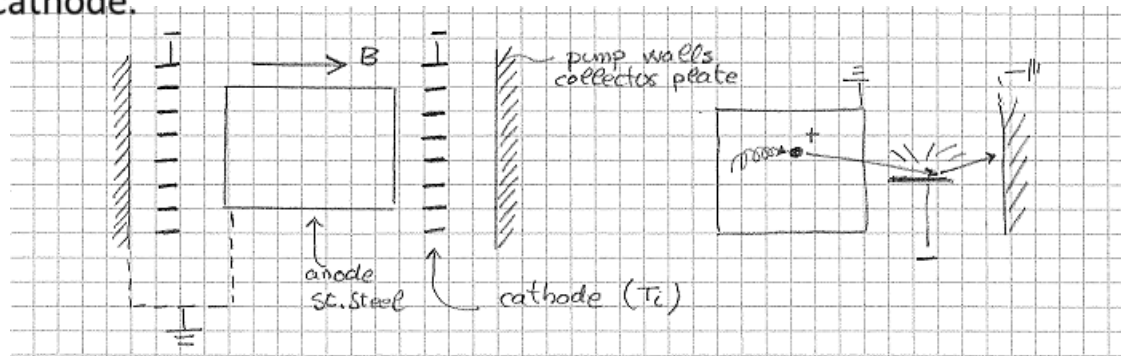 cathode.
B
pump walls
collector plate
+
anode
st. steel
cathode (Ti)